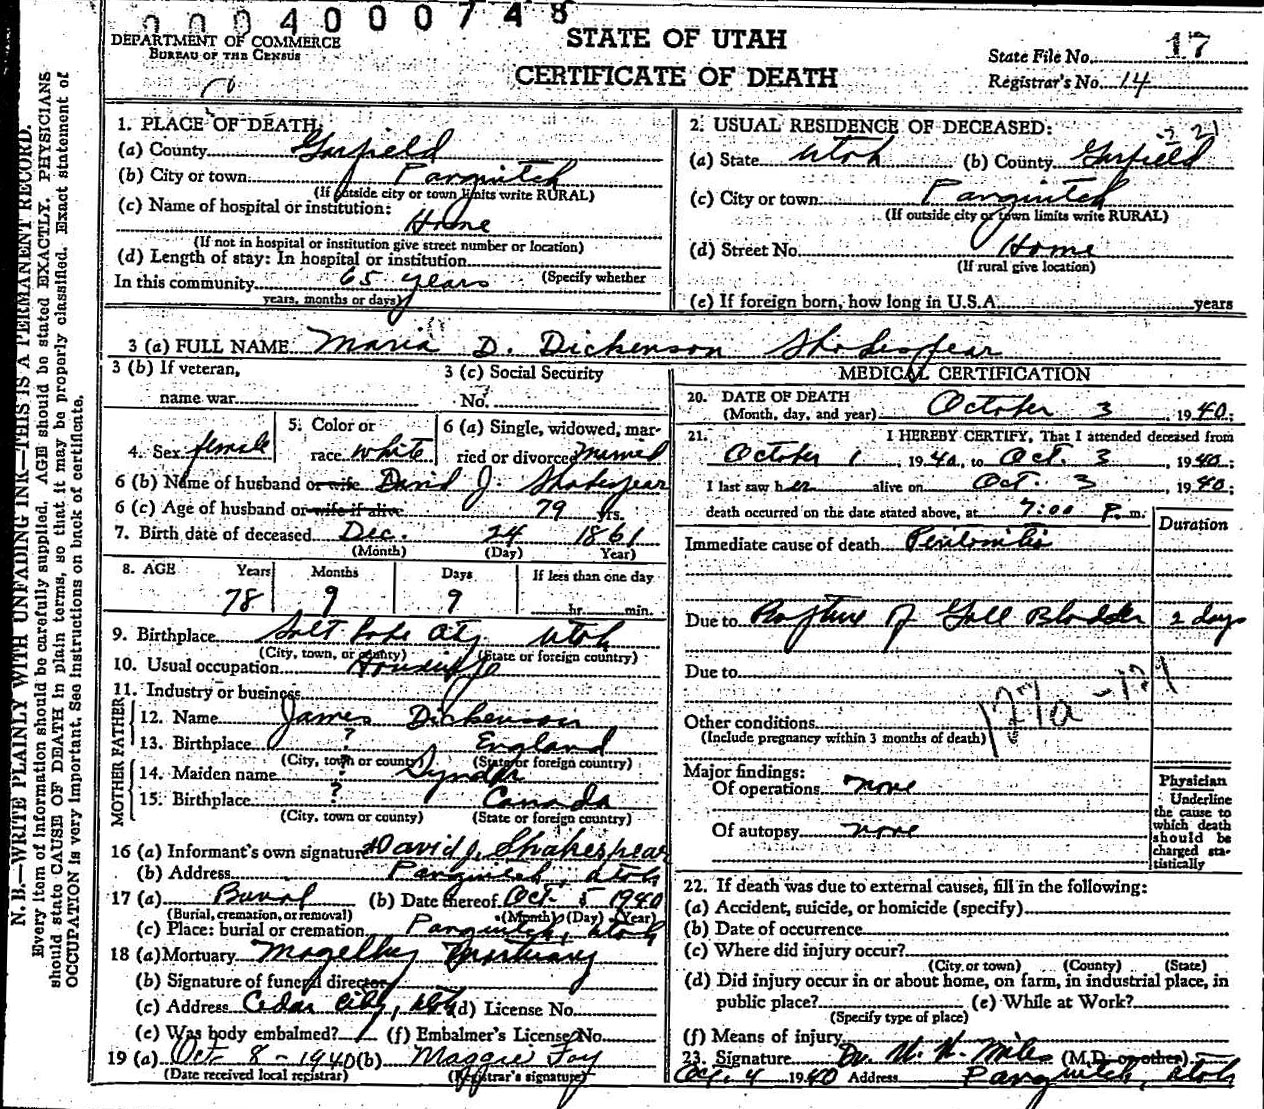 000400748
DEPARTMENT OF COMMERCE
BUREAU OF THE CENSUS
STATE OF UTAH
CERTIFICATE OF DEATH
State File No. 17
Registrar's No. 14
N. B.—WRITE PLAINLY WITH UNFADING INK—THIS IS A PERMANENT RECORD.
Every item of information should be carefully supplied. AGE should be stated EXACTLY. PHYSICIANS
should state CAUSE OF DEATH in plain terms, so that it may be properly classified. Exact statement of
OCCUPATION is very important. See instructions on back of certificate.
1. PLACE OF DEATH:
(a) County Garfield
(b) City or town Panguitch
(If outside city or town limits write RURAL)
(c) Name of hospital or institution:
Home
(If not in hospital or institution give street number or location)
(d) Length of stay: In hospital or institution
(Specify whether
In this community 65 years
years, months or days)
2. USUAL RESIDENCE OF DECEASED:
(a) State Utah (b) County Garfield
(c) City or town Panguitch
(If outside city or town limits write RURAL)
(d) Street No. Home
(If rural give location)
(e) If foreign born, how long in U.S.A. years
3 (a) FULL NAME Maria D. Dickenson Shakespear
3 (b) If veteran,
name war
3 (c) Social Security
No.
4. Sex female
5. Color or
race white
6 (a) Single, widowed, mar-
ried or divorced Married
6 (b) Name of husband or wife David J. Shakespear
6 (c) Age of husband or wife if alive 79 yrs.
7. Birth date of deceased Dec. 24 1861
(Month) (Day) Year)
8. AGE Years Months Days If less than one day
78 9 9 hr. min.
9. Birthplace Salt Lake City Utah
(City, town, or county) (State or foreign country)
10. Usual occupation Housewife
11. Industry or business
FATHER
12. Name James Dickenson
13. Birthplace ? England
(City, town or county) (State or foreign country)
MOTHER
14. Maiden name ? Synder
15. Birthplace ? Canada
(City, town or county) (State or foreign country)
16 (a) Informant's own signature David J. Shakespear
(b) Address Panguitch, Utah
17 (a) Burial (b) Date thereof Oct. 5 1940
(Burial, cremation, or removal) (Month) (Day) (Year)
(c) Place: burial or cremation Panguitch, Utah
18 (a) Mortuary Mortuary
(b) Signature of funeral director
(c) Address Cedar City, Utah (d) License No.
(e) Was body embalmed? (f) Embalmer's License No.
19 (a) Oct 8 - 1940 (b) Maggie Foy
(Date received local registrar) (Registrar's signature)
MEDICAL CERTIFICATION
20. DATE OF DEATH
(Month, day, and year) October 3 1940;
21. I HEREBY CERTIFY, That I attended deceased from
October 1, 1940, to Oct. 3, 1940;
I last saw her alive on Oct. 3 1940;
death occurred on the date stated above, at 7:00 P. m.
Duration
Immediate cause of death Peritonitis
Due to Rupture of Gall Bladder 2 days
Due to
127a -
Other conditions
(Include pregnancy within 3 months of death)
Major findings:
Of operations none
Of autopsy none
Physician
Underline
the cause to
which death
should be
charged sta-
tistically
22. If death was due to external causes, fill in the following:
(a) Accident, suicide, or homicide (specify)
(b) Date of occurrence
(c) Where did injury occur?
(City or town) (County) (State)
(d) Did injury occur in or about home, on farm, in industrial place, in
public place? (e) While at Work?
(Specify type of place)
(f) Means of injury
23. Signature Dr. W. W. Miles (M.D. or other)
Oct. 4 1940 Address Panguitch, Utah